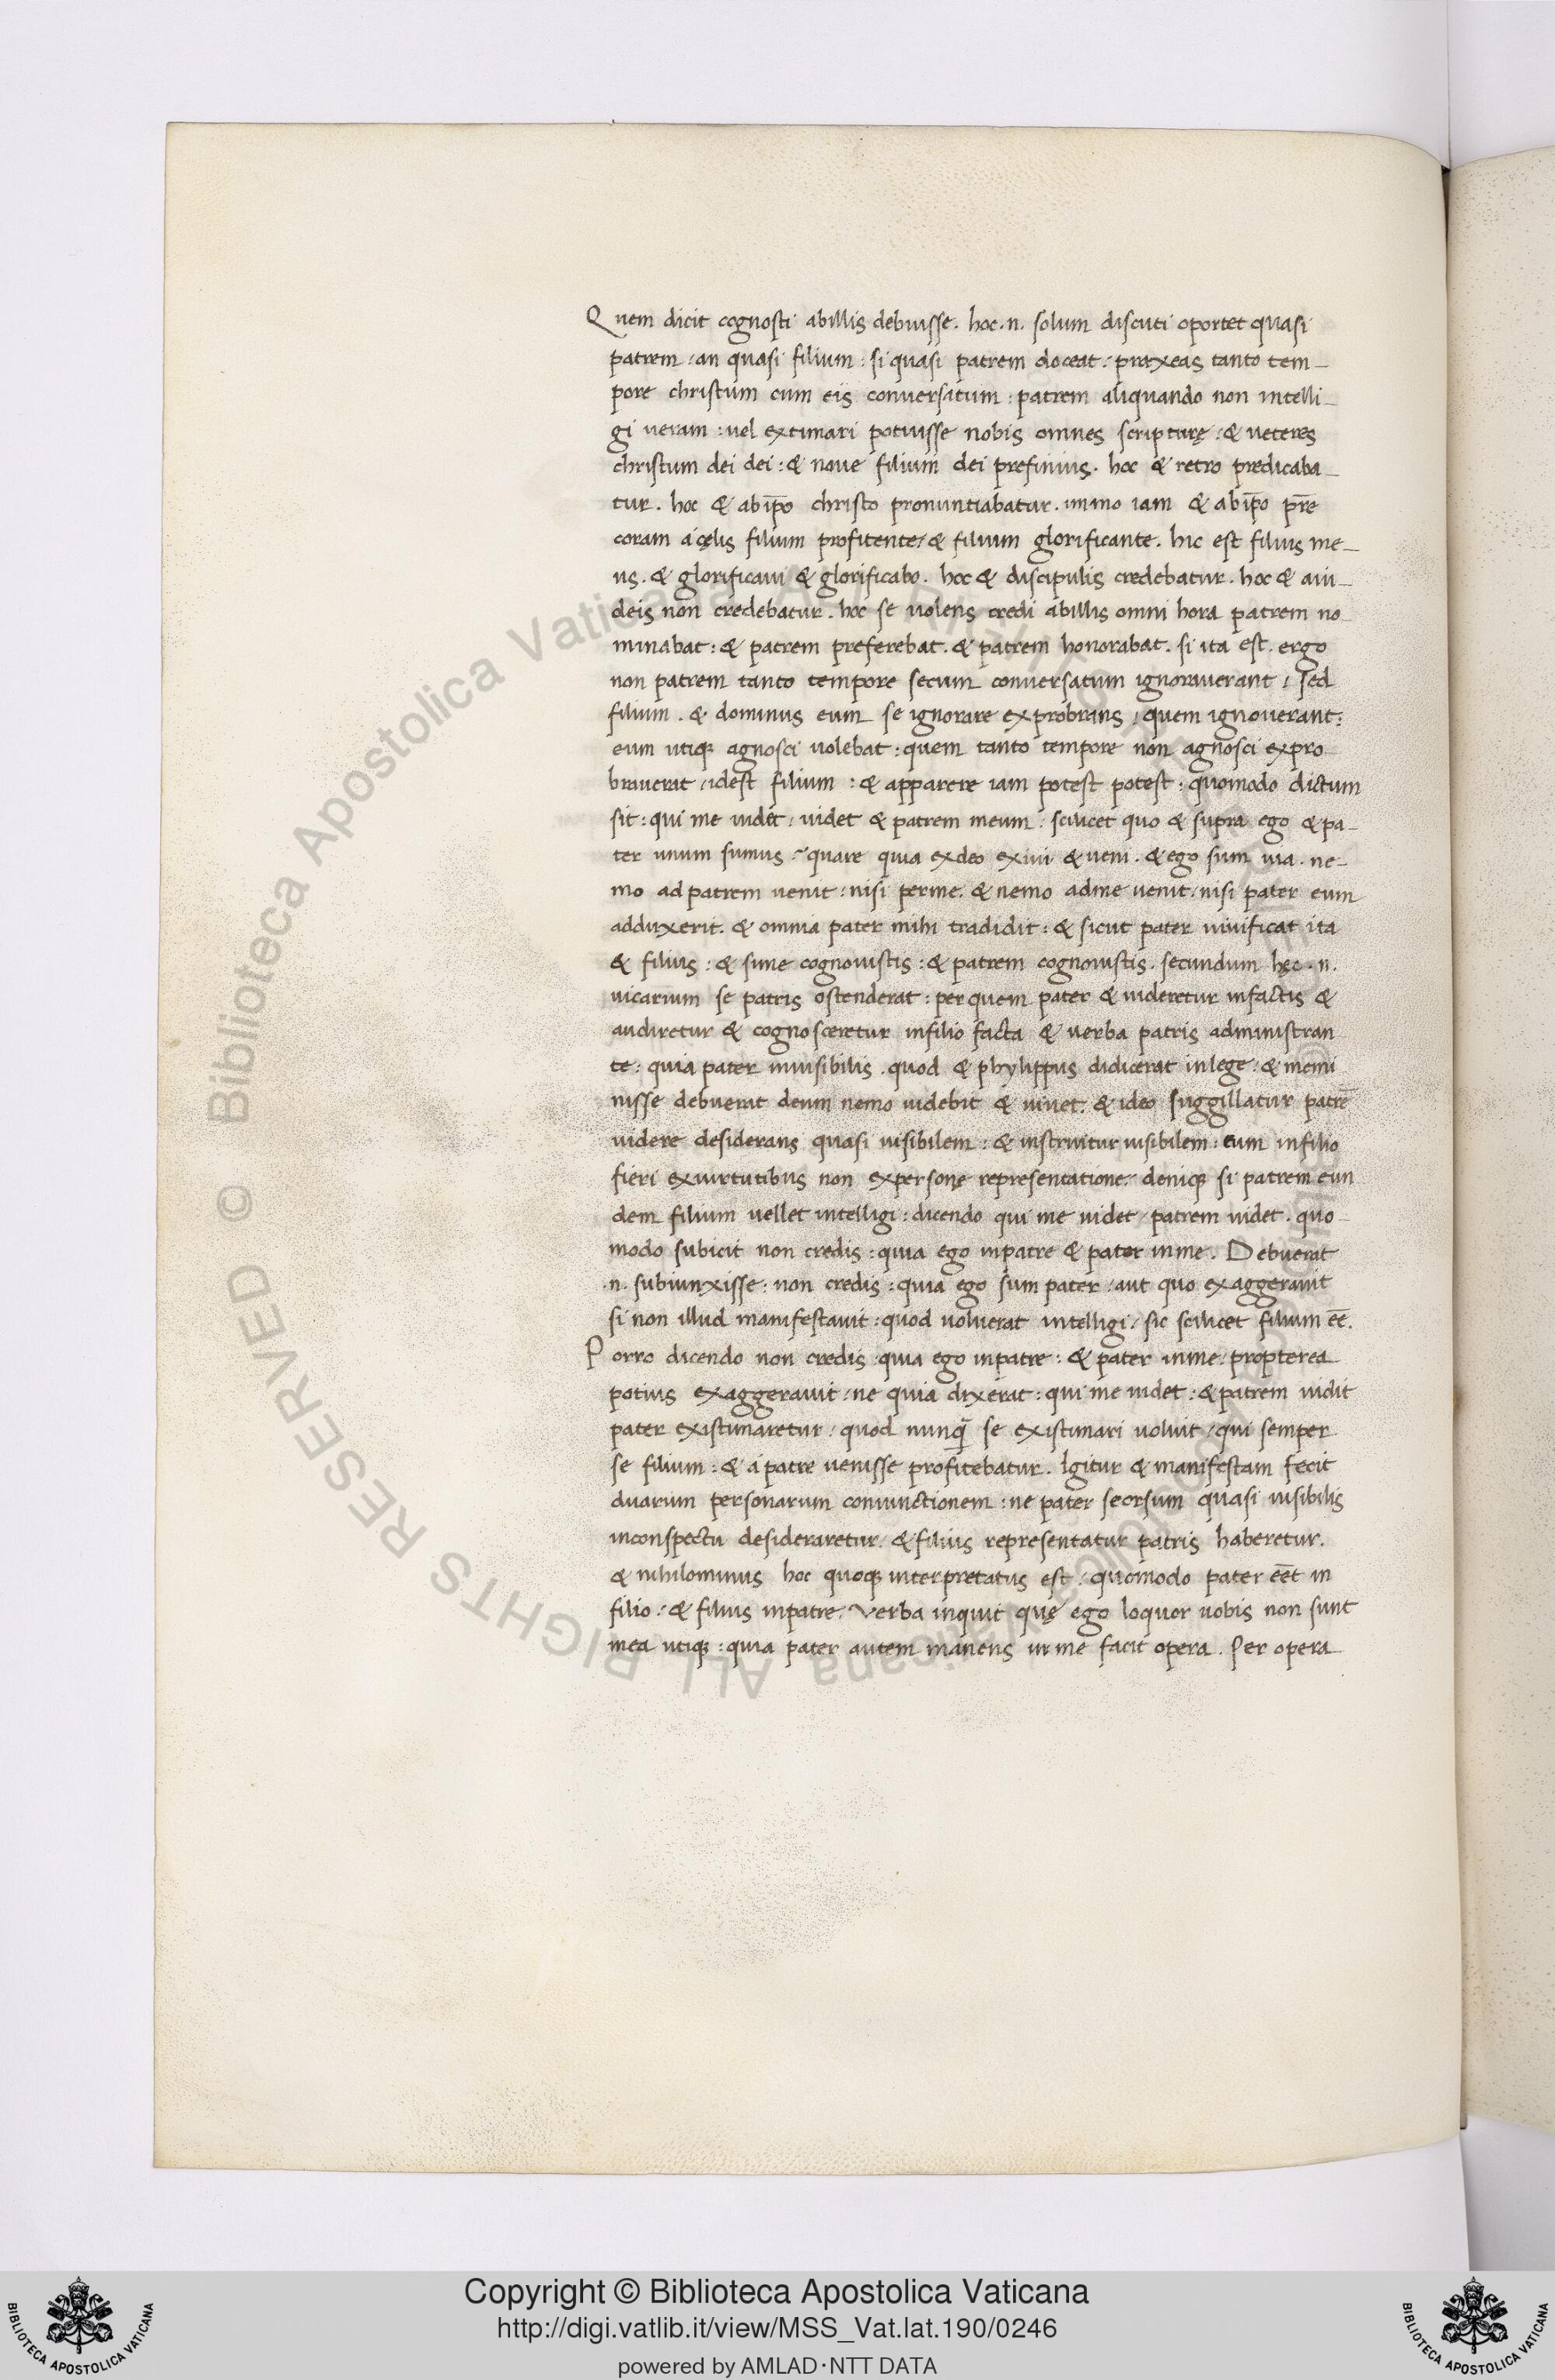 Quem dicit cognosci abillis debuisse. hoc .n. solum discuti oportet quasi
patrem / an quasi filium : si quasi patrem doceat / praxeas tanto tem-
pore christum cum eis conversatum : patrem aliquando non intelli-
gi ueram : uel extimari potuisse nobis omnes scripturę : & ueteres
christum dei dei : & noue filium dei prefinius . hoc & retro predicaba-
tur . hoc & abip̄o christo pronuntiabatur . immo iam & abip̄o pr̄e
coram a cęlis filium profitente / & filium glorificante . hic est filius me-
us . & glorificaui & glorificabo . hoc & discipulis credebatur . hoc & aiu-
deis non credebatur . hoc se uolens credi abillis omni hora patrem no-
minabat : & patrem preferebat . & patrem honorabat . si ita est . ergo
non patrem tanto tempore secum conuersatum ignorauerant / sed
filium . & dominus eum se ignorare exprobrans / quem ignouerant :
eum utiqꝫ agnosci uolebat : quem tanto tempore non agnosci expro-
brauerat / idest filium : & apparere iam potest potest : quomodo dictum
sit : qui me uidet / uidet & patrem meum / scilicet quo & supra ego & pa-
ter unum sumus / quare quia exdeo exiui & ueni . & ego sum uia . ne-
mo ad patrem uenit : nisi perme . & nemo adme uenit / nisi pater eum
adduxerit . & omnia pater mihi tradidit : & sicut pater uiuificat ita
& filius : & sime cognouistis : & patrem cognouistis . secundum hęc .n.
uicarium se patris ostenderat : per quem pater & uideretur infactis &
audiretur & cognosceretur infilio facta & uerba patris administran
te : quia pater inuisibilis . quod & phylippus didicerat inlege / & memi
nisse debuerat deum nemo uidebit & uiuet . & ideo suggillatur patrē
uidere desiderans quasi uisibilem : & instruitur uisibilem : eum infilio
fieri exuirtutibus non expersonę representatione / deniqꝫ si patrem eun
dem filium uellet intelligi : dicendo qui me uidet / patrem uidet . quo-
modo subicit non credis : quia ego inpatre & pater inme . Debuerat
.n. subiunxisse : non credis : quia ego sum pater / aut quo exaggerauit
si non illud manifestauit : quod uoluerat intelligi / sic scilicet filium eē.
Porro dicendo non credis quia ego inpatre : & pater inme / propterea
potius exaggerauit / ne quia dixerat : qui me uidet : & patrem uidit
pater existimaretur / quod nunq̄ se existimari uoluit / qui semper
se filium : & a patre uenisse profitebatur . Igitur & manifestam fecit
duarum personarum coniunctionem : ne pater seorsum quasi uisibilis
inconspectu desideraretur / & filius representatur patris haberetur.
& nihilominus hoc quoqꝫ interpretatus est / quomodo pater eēt in
filio / & filius inpatre / Verba inquit quę ego loquor uobis non sunt
mea utiqꝫ : quia pater autem manens in me facit opera . Per opera
Copyright © Biblioteca Apostolica Vaticana
http://digi.vatlib.it/view/MSS_Vat.lat.190/0246
powered by AMLAD·NTT DATA